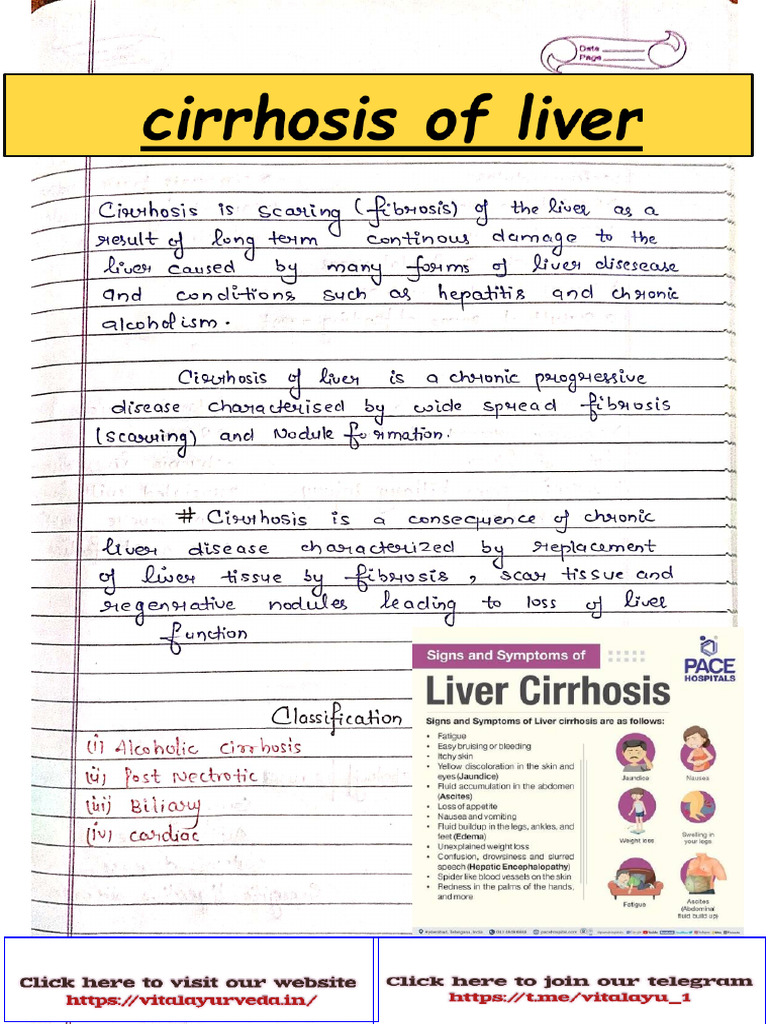 Date
Page
cirrhosis of liver
Cirrhosis is scaring (fibrosis) of the liver as a
result of long term continous damage to the
liver caused by many forms of liver disesease
and conditions such as hepatitis and chronic
alcoholism.
Cirrhosis of liver is a chronic progressive
disease characterised by wide spread fibrosis
(scarring) and Nodule formation.
# Cirrhosis is a consequence of chronic
liver disease characterized by replacement
of liver tissue by fibrosis, scar tissue and
regenrative nodules leading to loss of liver
function
Classification
(i) Alcoholic cirrhosis
(ii) Post Nectrotic
(iii) Biliary
(iv) cardiac
Signs and Symptoms of
Liver Cirrhosis
PACE
HOSPITALS
Signs and Symptoms of Liver cirrhosis are as follows:
• Fatigue
• Easy bruising or bleeding
• Itchy skin
• Yellow discoloration in the skin and
eyes (Jaundice)
• Fluid accumulation in the abdomen
(Ascites)
• Loss of appetite
• Nausea and vomiting
• Fluid buildup in the legs, ankles, and
feet (Edema)
• Unexplained weight loss
• Confusion, drowsiness and slurred
speech (Hepatic Encephalopathy)
• Spider like blood vessels on the skin
• Redness in the palms of the hands,
and more
Jaundice
Nausea
Weight loss
Swelling in
your legs
Fatigue
Ascites
(Abdominal
fluid build up)
Click here to visit our website
https://vitalayurveda.in/
Click here to join our telegram
https://t.me/vitalayu_1